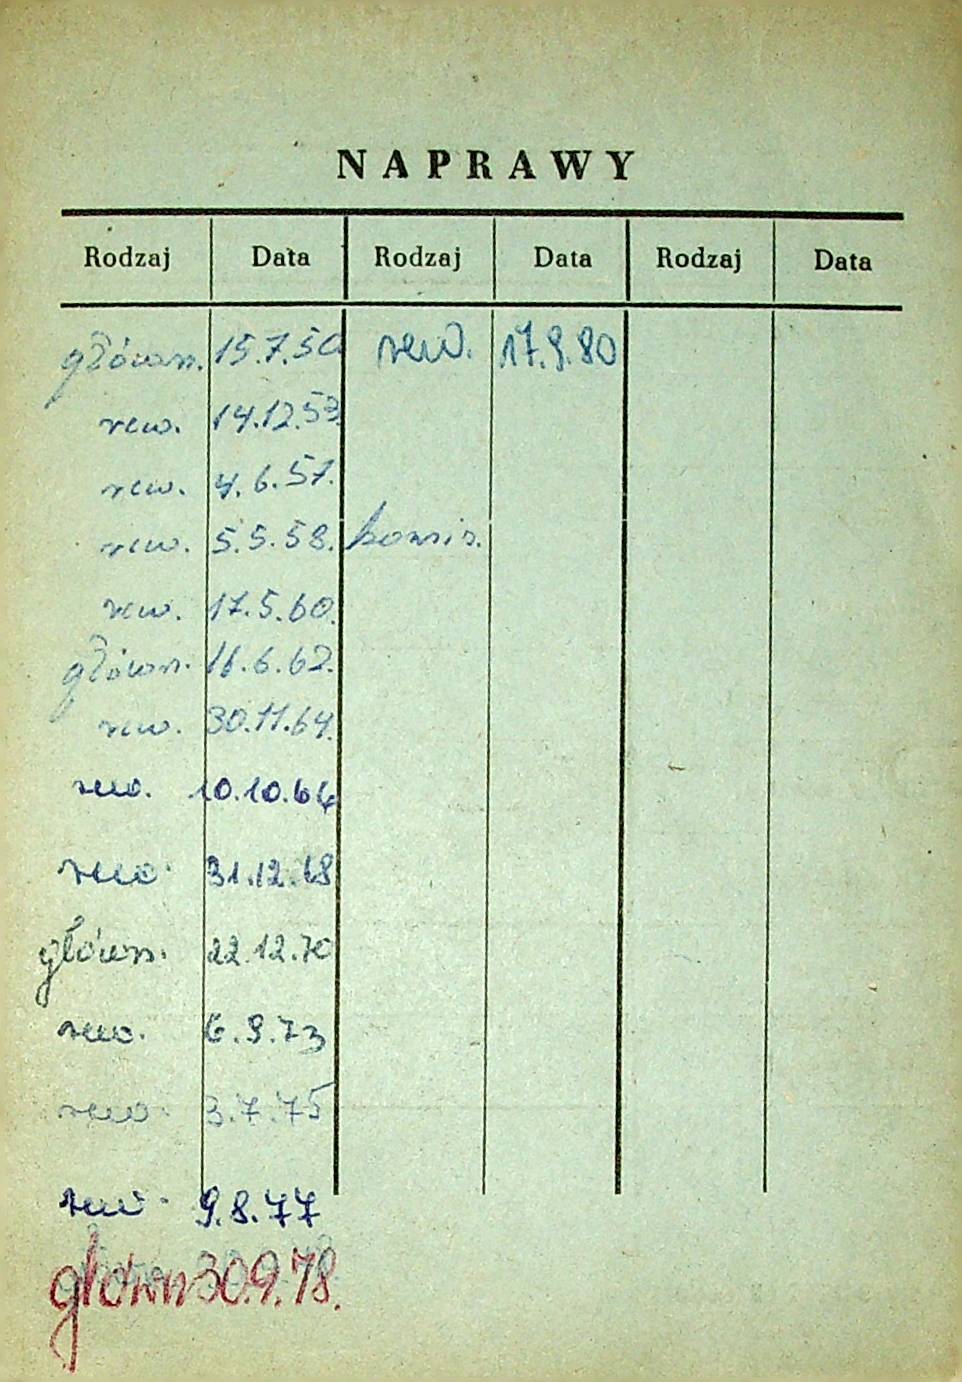 NAPRAWY
Rodzaj Data Rodzaj Data Rodzaj Data
główn. 15.7.50 rew. 17.9.80
rew. 14.12.53.
rew. 4.6.57.
rew. 5.5.58. komis.
rew. 17.5.60.
główn. 16.6.62.
rew. 30.11.64.
rew. 10.10.66
rew. 31.12.68
główn. 22.12.70
rew. 6.9.73
rew. 3.7.75
rew. 9.8.77
główn 30.9.78.